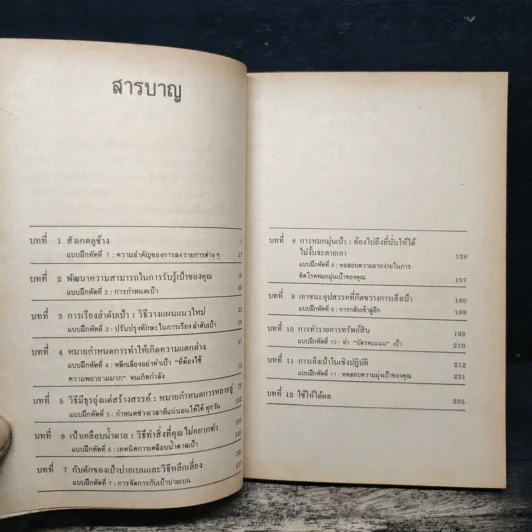 สารบาญ
บทที่ 1 สังเกตดูช้าง 1
แบบฝึกหัดที่ 1 : ความสำคัญของการลงรายการต่าง ๆ 17
บทที่ 2 พัฒนาความสามารถในการรับรู้เป้าของคุณ
แบบฝึกหัดที่ 2 : การกำหนดเป้า
บทที่ 3 การเรียงลำดับเป้า : วิธีวางแผนแนวใหม่
แบบฝึกหัดที่ 3 : ปรับปรุงทักษะในการเรียงลำดับเป้า
บทที่ 4 หมายกำหนดการทำให้เกิดความแตกต่าง
แบบฝึกหัดที่ 4 : หลีกเลี่ยงอย่าทำเป้า "ที่ต้องใช้
ความพยายามมาก" จนเกินกำลัง
บทที่ 5 วิธีมีธุรยุ่งแต่สร้างสรรค์ : หมายกำหนดการหลายคู่
แบบฝึกหัดที่ 5 : กำหนดช่วงเวลาที่แน่นอนให้ได้ ทุกวัน
บทที่ 6 เป้าเคลือบน้ำตาล : วิธีทำสิ่งที่คุณไม่อยากทำ
แบบฝึกหัดที่ 6 : เทคนิคการเคลือบน้ำตาลเป้า
บทที่ 7 กับดักของเป้าบ่ายเบนและวิธีหลีกเลี่ยง
แบบฝึกหัดที่ 7 : การจัดการกับเป้าบ่ายเบน
บทที่ 8 การหมกมุ่นเป้า : ต้องไปถึงที่นั่นให้ได้
ไม่งั้นจะตายเอา 138
แบบฝึกหัดที่ 8 : ทดสอบความยากง่ายในการ
ติดโรคหมกมุ่นเป้าของคุณ 157
บทที่ 9 เอาชนะอุปสรรคที่กีดขวางการเล็งเป้า 180
แบบฝึกหัดที่ 9 : การกลับเข้าสู่ลู่อีก 189
บทที่ 10 การทำรายการทรัพย์สิน 192
แบบฝึกหัดที่ 10 : ทำ "บัตรคะแนน" เป้า 210
บทที่ 11 การเล็งเป้าในเชิงปฏิบัติ 212
แบบฝึกหัดที่ 11 : ทดสอบความมุ่งเป้าของคุณ 231
บทที่ 12 ใช้ให้ได้ผล 235